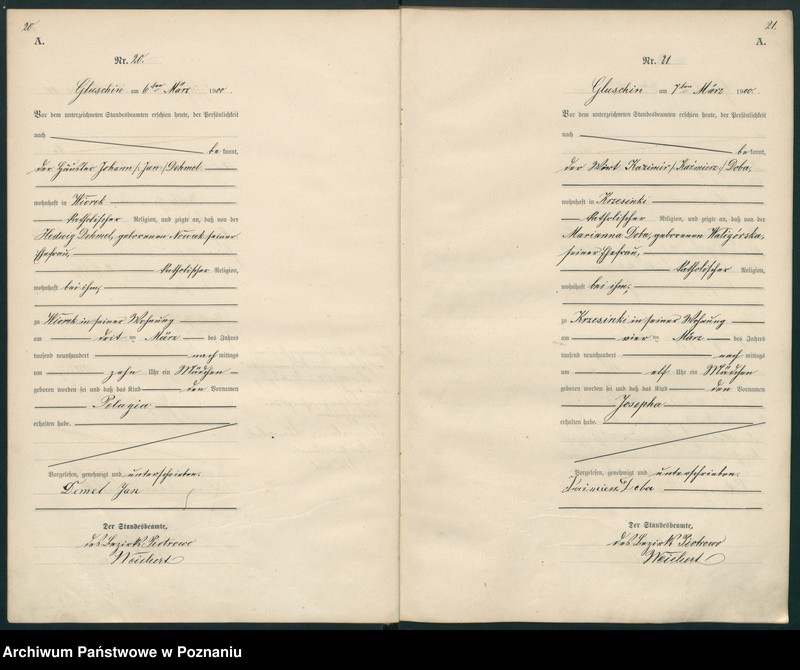 20.
A.
Nr. 20.
Gluschin am 6ten März 1900.
Vor dem unterzeichneten Standesbeamten erschien heute, der Persönlichkeit
nach
be kannt,
der Häusler Johann /: Jan :/ Dehmel
wohnhaft in Wiorek
katholischer Religion, und zeigte an, daß von der
Hedwig Dehmel, geborenen Nowak seiner
Ehefrau,
katholischer Religion,
wohnhaft bei ihm,
zu Wiorek in seiner Wohnung
am drei ten März des Jahres
tausend neunhundert nach mittags
um zehn Uhr ein Mädchen
geboren worden sei und daß das Kind den Vornamen
Pelagia
erhalten habe.
Vorgelesen, genehmigt und unterschrieben.
Demel Jan
Der Standesbeamte,
des Bezirk Piotrowo
Weichert
21.
A.
Nr. 21
Gluschin am 7ten März 1900.
Vor dem unterzeichneten Standesbeamten erschien heute, der Persönlichkeit
nach
be kannt,
der Wirt Kazimir /: Kaźmierz :/ Doba,
wohnhaft in Krzesinki
katholischer Religion, und zeigte an, daß von der
Marianna Doba, geborenen Waligórska,
seiner Ehefrau,
katholischer Religion,
wohnhaft bei ihm,
zu Krzesinki in seiner Wohnung
am vier ten März des Jahres
tausend neunhundert nach mittags
um elf Uhr ein Mädchen
geboren worden sei und daß das Kind den Vornamen
Josepha
erhalten habe.
Vorgelesen, genehmigt und unterschrieben.
Kaimierz Doba
Der Standesbeamte,
des Bezirk Piotrowo
Weichert
Archiwum Państwowe w Poznaniu